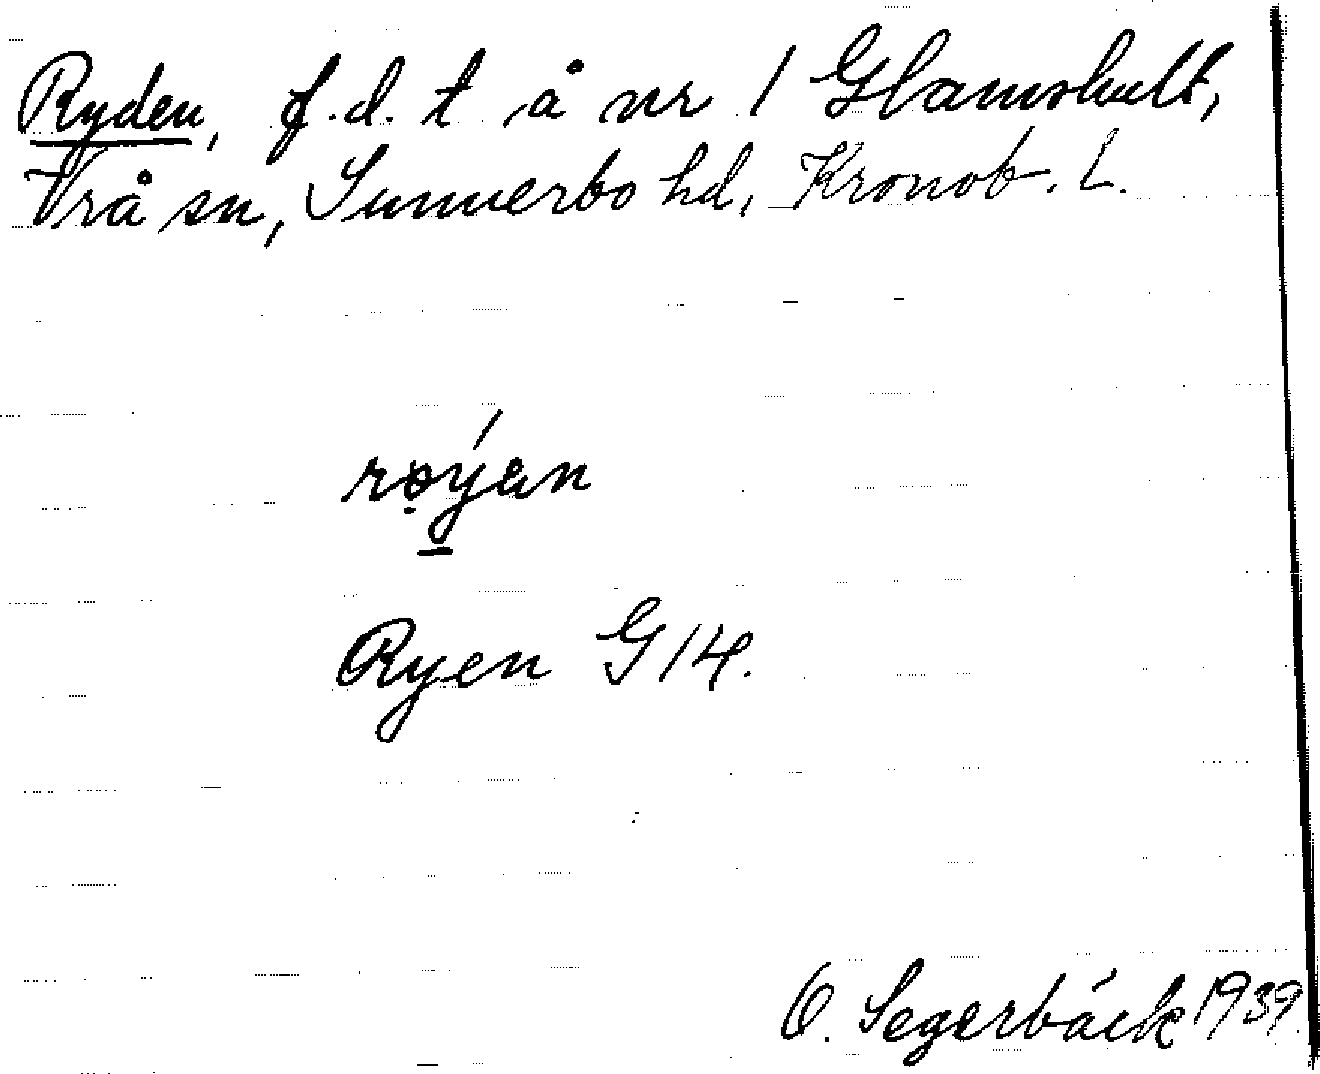 Ryden, f.d. t å nr 1 Glamshult,
Vrå sn, Sunnerbo hd, Kronob. L.
røýan
Ryen G 14.
O. Segerbäck 1939.